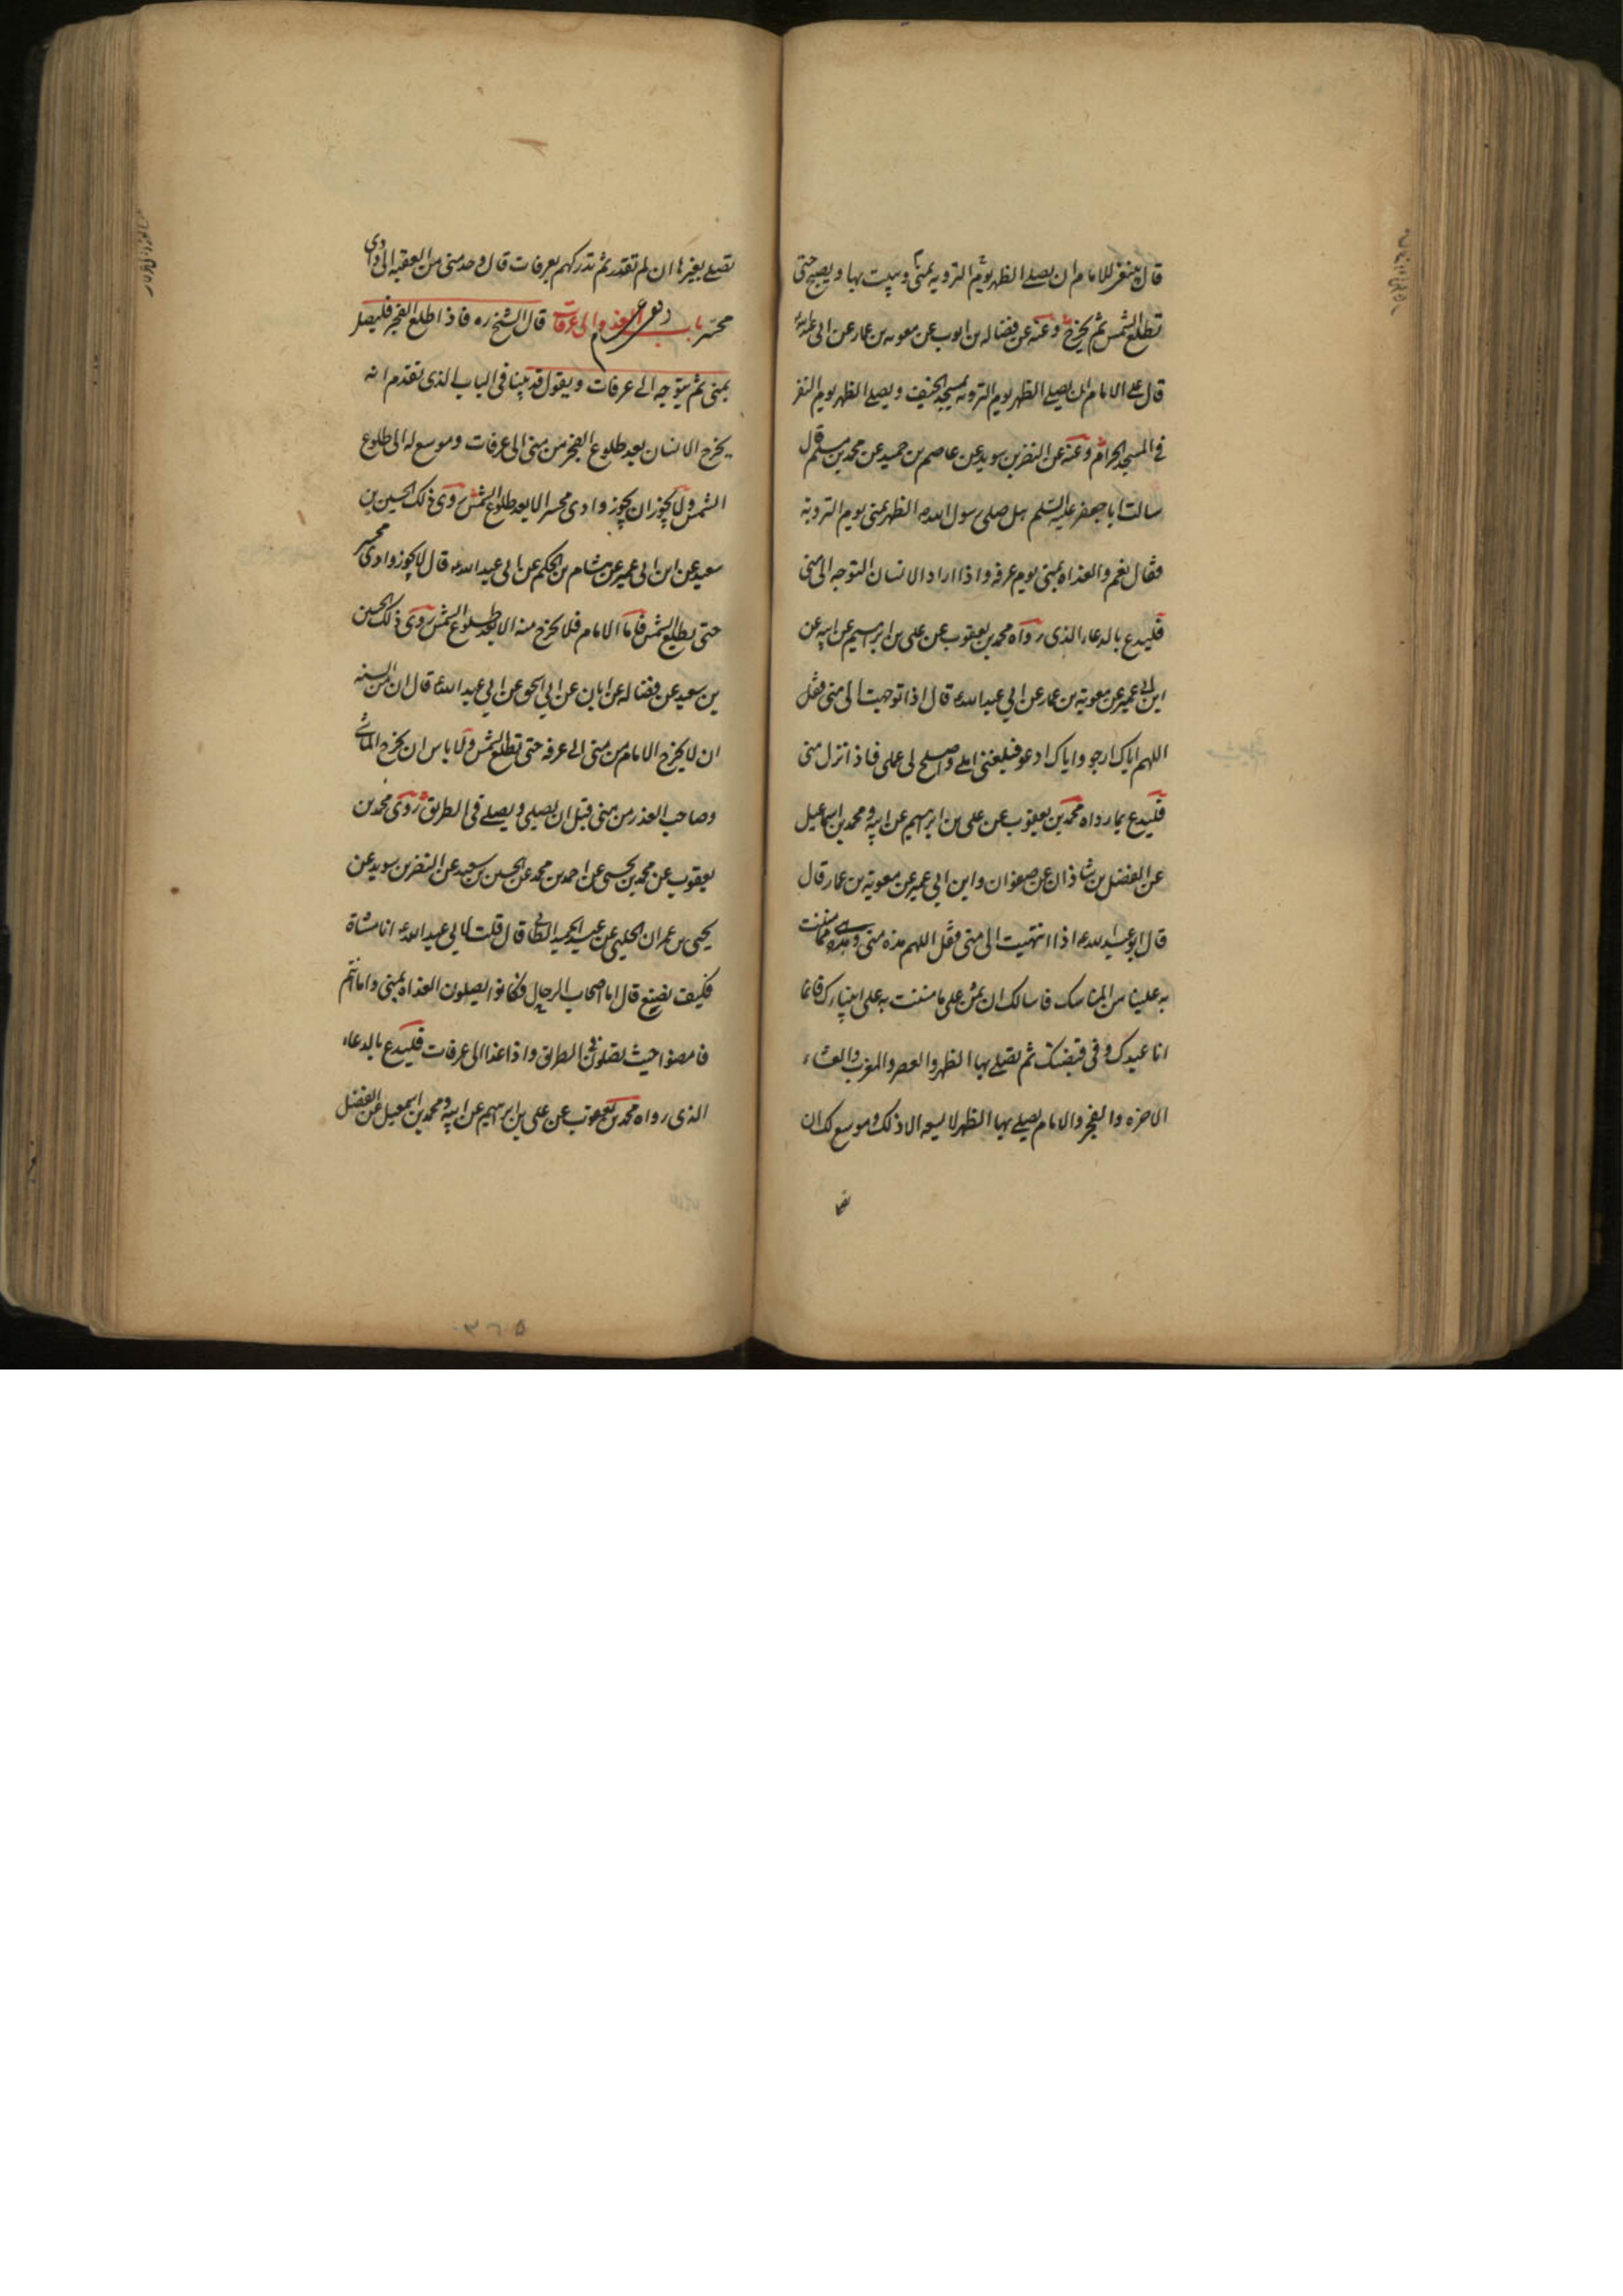 قال ينبغى للامام ان يصلى الظهر يوم الترويه بمنى و يبيت بها و يصبح حتى
تطلع الشمس ثم يخرج وعنه عن فضاله بن ايوب عن معويه بن عمار عن ابى عبد الله
قال على الامام ان يصلى الظهر يوم الترويه بمسجد الخيف و يصلى الظهر يوم النفر
فى المسجد الحرام وعنه عن النضر بن سويد عن عاصم بن حميد عن محمد بن مسلم قال
سالت ابا جعفر عليه السلم هل صلى رسول الله ص الظهر بمنى يوم الترويه
فقال نعم والغداه بمنى يوم عرفه واذا اراد الانسان التوجه الى منى
فليدع بالدعاء الذى رواه محمد بن يعقوب عن على بن ابرهيم عن ابيه عن
ابن ابى عمير عن معويه بن عمار عن ابى عبد الله ع قال اذا توجهت الى منى فقل
اللهم اياك ارجو واياك ادعو فبلغنى املى واصلح لى عملى فاذا نزل منى
فليدع بما رواه محمد بن يعقوب عن على بن ابرهيم عن ابيه و محمد بن اسماعيل
عن الفضل بن شاذان عن صفوان وابن ابى عمير عن معويه بن عمار قال
قال ابو عبد الله ع اذا انتهيت الى منى فقل اللهم هذه منى وهى مما مننت
به علينا من المناسك فاسالك ان تمن على ما مننت به على انبيائك فانما
انا عبدك وفى قبضتك ثم تصلى بها الظهر والعصر والمغرب والعشاء
الاخره والفجر والامام يصلى بها الظهر لا يسعه الا ذلك وموسع لك ان
تصلى بغيرها ان لم تقدر ثم تدركهم بعرفات قال وحد منى من العقبه الى وادى
محسر باب الغدو الى عرفات قال الشيخ ره فاذا طلع الفجر فليصل
بمنى ثم يتوجه الى عرفات ويقول قد بينا فى الباب الذى تقدم انه
يخرج الانسان بعد طلوع الفجر من منى الى عرفات وموسع له الى طلوع
الشمس ولا يجوز ان يجوز وادى محسر الا بعد طلوع الشمس روى ذلك الحسين بن
سعيد عن ابن ابى عمير عن هشام بن الحكم عن ابى عبد الله ع قال لا يجوز وادى محسر
حتى تطلع الشمس فاما الامام فلا يخرج منه الا بعد طلوع الشمس روى ذلك الحسين
بن سعيد عن فضاله عن ابان عن ابى اسحق عن ابى عبد الله ع قال ان من السنه
ان لا يخرج الامام من منى الى عرفه حتى تطلع الشمس ولا باس ان يخرج الماشى
وصاحب العذر من منى قبل ان يصلى ويصلى فى الطريق روى محمد بن
يعقوب عن محمد بن يحيى عن احمد بن محمد عن الحسين بن سعيد عن النضر بن سويد عن
يحيى بن عمران الحلبى عن عبد الحميد الطائى قال قلت لابى عبد الله ع انا مشاة
فكيف نصنع قال اما اصحاب الرحال فكانوا يصلون الغداه بمنى واما انتم
فامضوا حيث تصلون فى الطريق واذا غدا الى عرفات فليدع بالدعاء
الذى رواه محمد بن يعقوب عن على بن ابرهيم عن ابيه و محمد بن اسمعيل عن الفضل
٣٦٥